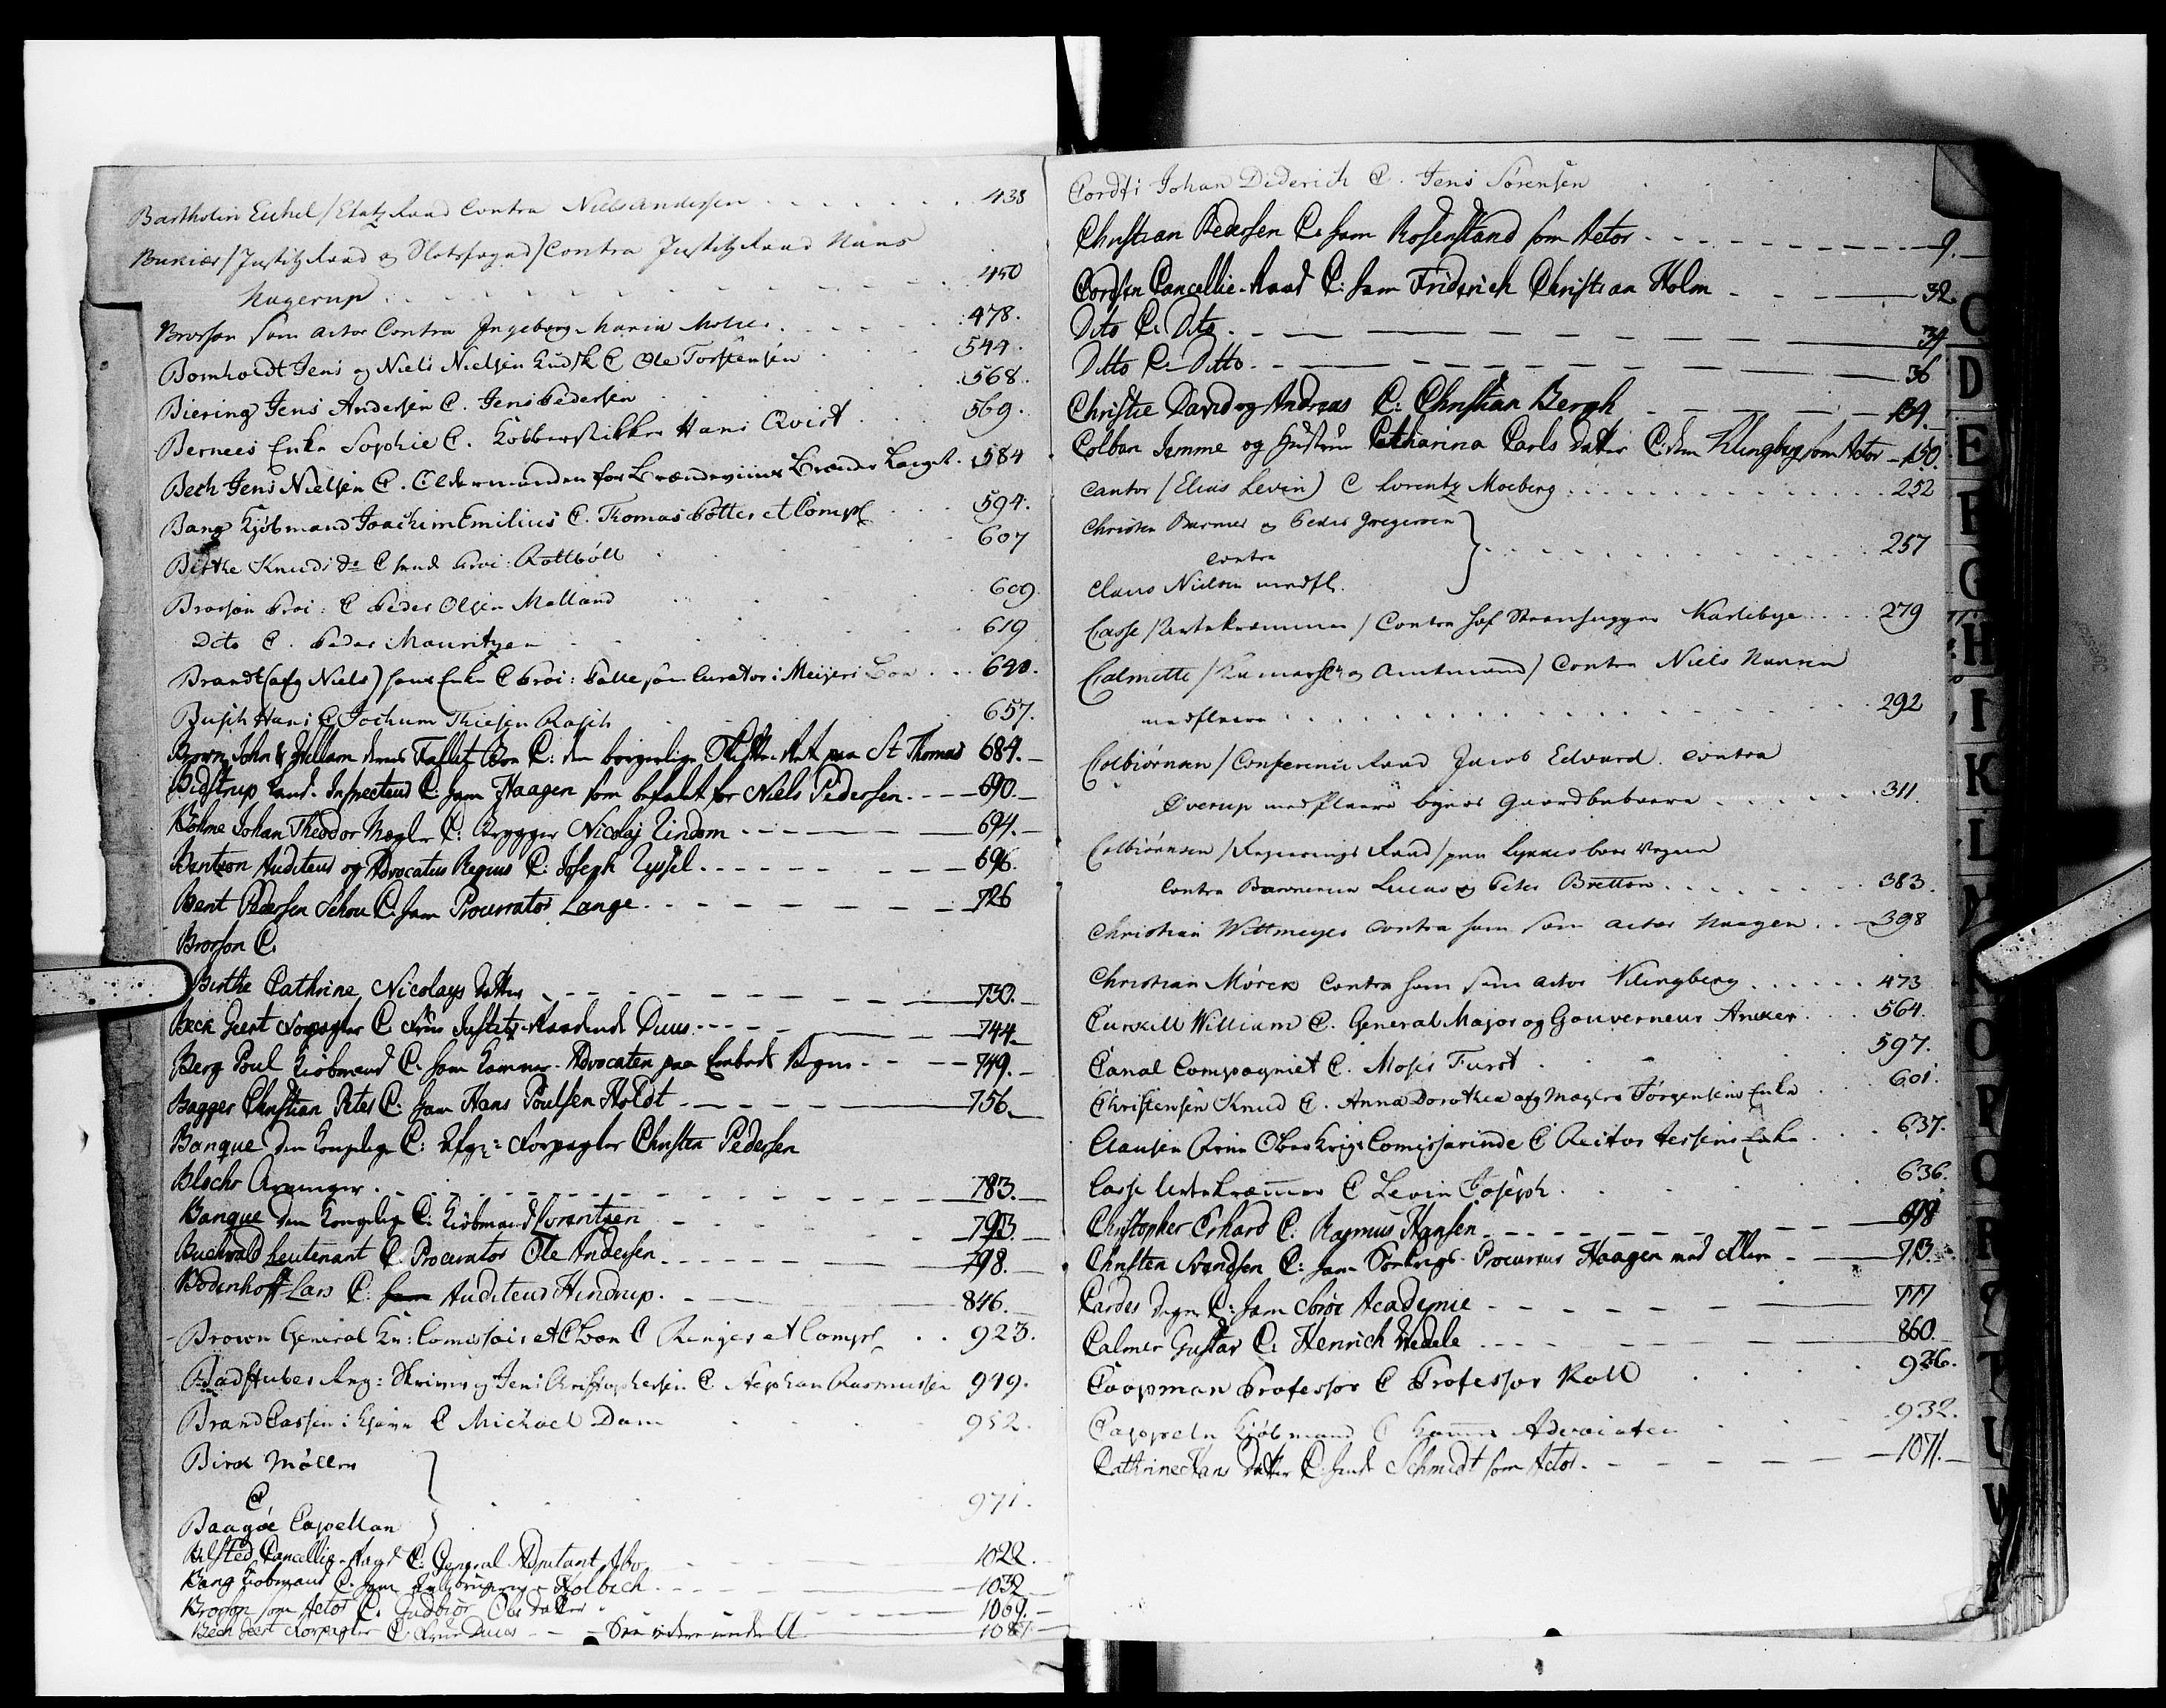 Bartholin Eichel / Etatz Raad Contra Niels Andersen 438
/ Justitz Raad og Slotsfoged / Contra Justitz Raad Hans
Hagerup 450
Brorson som actor Contra Ingeborg Maria 478.
Bornholdt Jens og Niels Nielsen C Ole Torstensen 544.
Biering Jens Andersen C. Jens Pedersen 568.
Bernees Enke Sophie C. Kobberstikker Hans Qvist 569.
Bech Jens Nielsen C. Oldermanden for Brændeviins Brænder Lauget 584
Bang Kjöbmand Joachim Emilius C. Thomas Potter et Comp 594.
Birthe Knuds dr C Proc: Rottböll 607
Brorson Proc: C Peder Olsen Malland 609.
Dito C. Peder Mauritzen 619
Brandt (afg Niels) hans Enke C Proc: Balle som Curator i Meijers Boe 640.
Busch Hans C Jochum Thiesen Rasch 657.
Brown John & William deres Fallit Boe C: den borgerlige Skifte Ret paa St Thomas 684.
Bidstrup Land-Inspecteur C. ham Haagen som befalet for Niels Pedersen. 690.
Böhme Johan Theodor Mægler C: Brygger Nicolaj Lindam 694.
Bentzon Auditeur og Advocatus Regius C. Joseph Lyssel 696.
Bent Pedersen Schou C. ham Procurator Lange 726
Brorson C.
Birthe Cathrine Nicolays datter 730.
Beck Geert Forpagter C Frue Justitz-Raadinde Duus 744.
Berg Poul Kiöbmand C. ham Kammer-Advocaten paa Embeds Vegne 749.
Bagger Christian Peter C. ham Hans Poulsen Holdt 756.
Banque den Kongelige C: Forpagter Christen Pedersen
Blochs Arvinger 783.
Banque den Kongelige C: Kiöbmand Lorentzen 793.
Buchwald Leutenant C. Procurator Ole Andersen 798.
Bodenhoff Lars C: ham Auditeur Hindrup. 846.
Brown General Kr: Comissair et C C Ringes et Comp 923.
Badstuber Reg: Skriver og Jens Christophersen C. Stephan Rasmussen 949.
Brand Cassen i Kjøben C Michael Dam 952.
Birch Møller
C
Baagöe Capellan 971.
Bilsted Cancellie-Raad C: General Adjutant Abo 1022.
Bang Kiobmand C. ham Holbech 1032
Brorson som Actor C. Gudbiør Ols datter 1069.
Bech Geert Forpagter C. Frue Duus 1087.
Cordsi Johan Diderich C. Jens Sörensen
Christian Pedersen C. ham Rosenstand som Actor 9.
Cordsen Cancellie-Raad C: ham Friderich Christian Holm 32
Dito C. Dito 34
Ditto C. Ditto 36
Christie David og Andreas C: Christian Bergh 134.
Colban Jemme og Hustrue Catharina Carls datter C. dem Klingberg som Actor 150.
Cantor (Elias Levin) C Lorentz Moeberg 252
Christen Barmer og Peder Gregersen
contra
Claus Nielsen medfl. 257
Casse / Urtekræmmer / Contra Hof Karleby 279
Calmette / Kamerher og Amtmand / Contra Niels Hansen
medfleere 292
Colbiörnsen / Conference Raad Jacob Edvard contra
Överup medfleere byens Gaardbeboere 311.
Colbiörnsen / Regierings Raad / paa Lykkes boes Vegne
contra Lucas og Peter Bretton 383.
Christian Wittmeyer contra ham som actor Haagen 398
Christian Mörck contra ham som actor Klingberg 473
Curkill William C. General Major og Gouverneur Anker 564.
Canal Compagniet C. Moses Furst 597.
Christensen Knud C. Anna Dorothea afg Jörgensens Enke 601.
Clausen Ober Krigs Comissarinde C Rector Jessens Enke 637.
Casse Urtekræmmer C Levin Joseph 636.
Christopher Erhard C. Rasmus Hansen 698
Christen Svendsen C: ham Haagen med flere 713.
Cardes Degn C: ham Soröe Academie 777
Calmer Gustav C. Henrich Wedele 860.
Coopman Professor C Professor Kall 926.
Cappeln Kjöbmand C Kammer Advocaten 932.
Cathrine Hans datter C. Schmidt som Actor. 1071.
C
D
E
F
G
H
I
K
L
M
O
P
Q
R
S
T
U
W